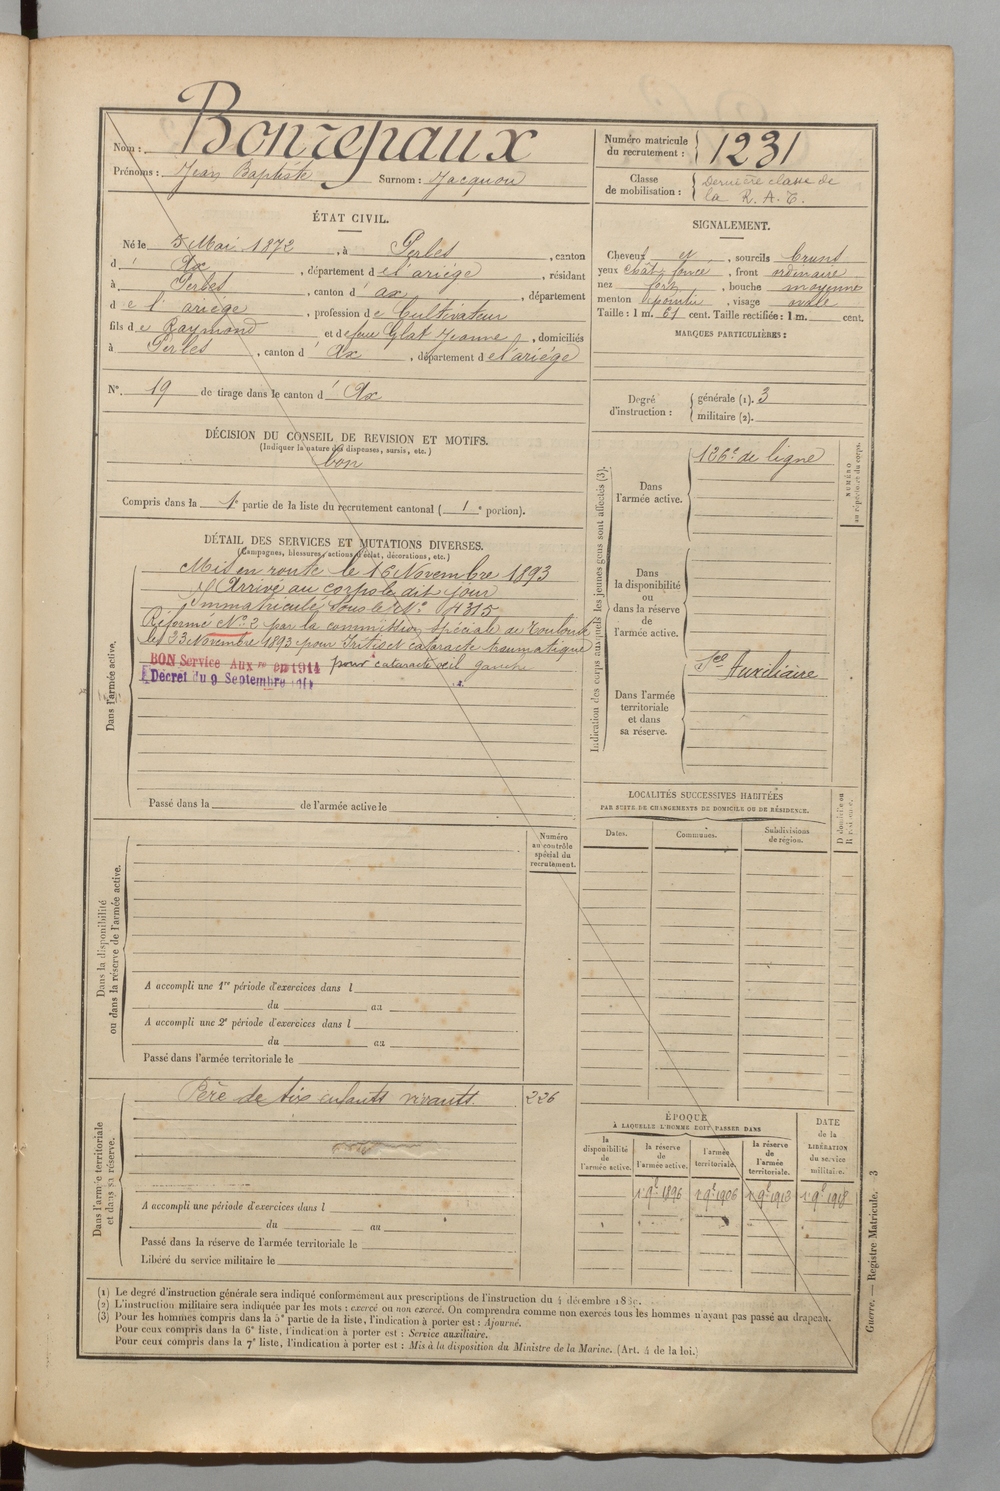 Nom : Bonrepaux
Prénoms : Jean Baptiste Surnom : Jacquou
Numéro matricule du recrutement : 1231
Classe de mobilisation : Dernière classe de la R. A. T.
ÉTAT CIVIL.
Né le 5 Mai 1872, à Perles, canton
d' Ax, département de l'ariége, résidant
à Perles, canton d' ax, département
de l' ariége, profession de Cultivateur
fils de Raymond et de feu Glat Jeanne, domiciliés
à Perles, canton d' Ax, département de l'ariége
N° 19 de tirage dans le canton d' Ax
SIGNALEMENT.
Cheveux et, sourcils bruns
yeux chât. foncé, front ordinaire
nez fort, bouche moyenne
menton pointu, visage ovale
Taille : 1 m. 61 cent. Taille rectifiée : 1 m. cent.
MARQUES PARTICULIÈRES :
Degré d'instruction : générale (1). 3
militaire (2).
DÉCISION DU CONSEIL DE REVISION ET MOTIFS.
(Indiquer la nature des dispenses, sursis, etc.)
bon
Compris dans la 1e partie de la liste du recrutement cantonal ( 1e portion).
DÉTAIL DES SERVICES ET MUTATIONS DIVERSES.
(Campagnes, blessures, actions d'éclat, décorations, etc.)
Dans l'armée active.
Mis en route le 16 Novembre 1893
Arrivé au corps le dit jour
Immatriculé sous le N° 4315
Réformé N° 2 par la commission spéciale de Toulouse
le 23 Novembre 1893 pour Iritis et cataracte traumatique
BON Service Auxre en 1914 pour cataracte œil gauche
Décret du 9 Septembre 1914
Passé dans la de l'armée active le
Indication des corps auxquels les jeunes gens sont affectés (3).
NUMÉRO au répertoire du corps.
Dans l'armée active.
126e de ligne
Dans la disponibilité ou dans la réserve de l'armée active.
Dans l'armée territoriale et dans sa réserve.
Sce Auxiliaire
LOCALITÉS SUCCESSIVES HABITÉES
PAR SUITE DE CHANGEMENTS DE DOMICILE OU DE RÉSIDENCE.
Dates. Communes. Subdivisions de région. D domicile ou R résidence.
Dans la disponibilité ou dans la réserve de l'armée active.
Numéro au contrôle spécial du recrutement.
A accompli une 1re période d'exercices dans l
du au
A accompli une 2e période d'exercices dans l
du au
Passé dans l'armée territoriale le
Dans l'armée territoriale et dans sa réserve.
Père de six enfants vivants. 226
A accompli une période d'exercices dans l
du au
Passé dans la réserve de l'armée territoriale le
Libéré du service militaire le
ÉPOQUE
À LAQUELLE L'HOMME DOIT PASSER DANS
la disponibilité de l'armée active.
la réserve de l'armée active.
l'armée territoriale.
la réserve de l'armée territoriale.
DATE de la LIBÉRATION du service militaire.
1r 9e 1896 1r 9e 1906 1r 9e 1913 1r 9e 1918
(1) Le degré d'instruction générale sera indiqué conformément aux prescriptions de l'instruction du 4 décembre 1889.
(2) L'instruction militaire sera indiquée par les mots : exercé ou non exercé. On comprendra comme non exercés tous les hommes n'ayant pas passé au drapeau.
(3) Pour les hommes compris dans la 5e partie de la liste, l'indication à porter est : Ajourné.
Pour ceux compris dans la 6e liste, l'indication à porter est : Service auxiliaire.
Pour ceux compris dans la 7e liste, l'indication à porter est : Mis à la disposition du Ministre de la Marine. (Art. 4 de la loi.)
Guerre. — Registre Matricule. 3